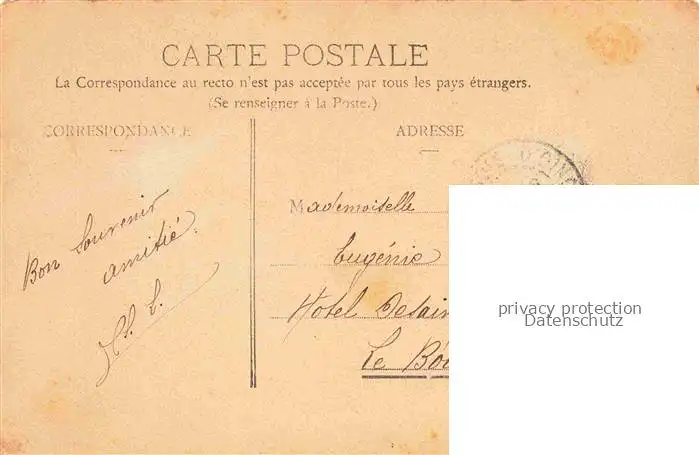 CARTE POSTALE
La Correspondance au recto n'est pas acceptée par tous les pays étrangers.
(Se renseigner à la Poste.)
CORRESPONDANCE
ADRESSE
Bon Souvenir
amitié.
Mademoiselle
Eugénie
Hotel
Le
privacy protection
Datenschutz